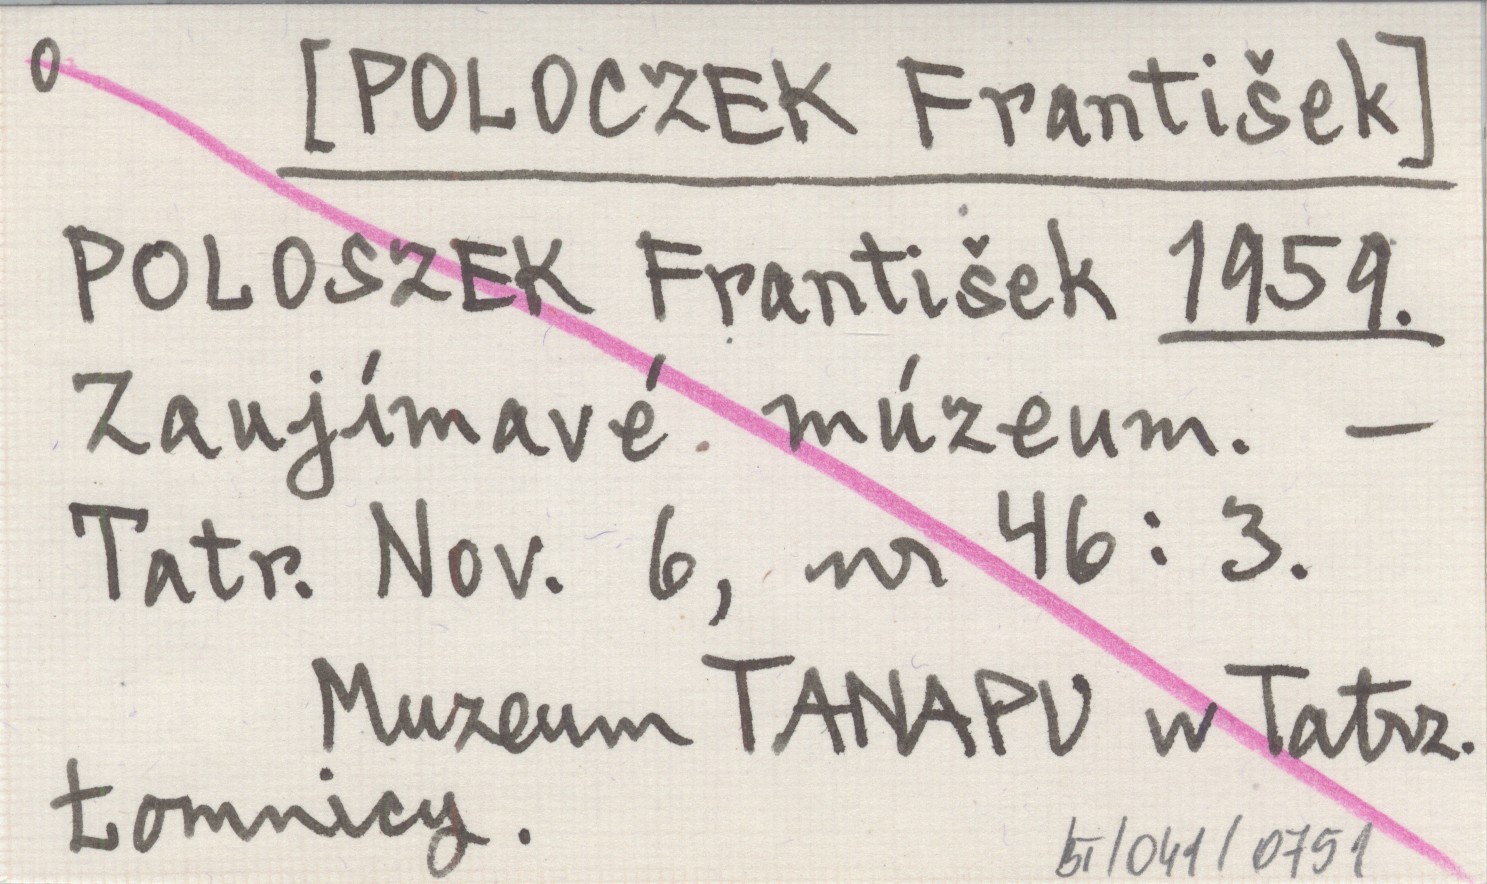 0 [POLOCZEK František]
POLOSZEK František 1959.
Zaujímavé múzeum. –
Tatr. Nov. 6, nr 46 : 3.
Muzeum TANAPU w Tatrz.
Łomnicy.
bi/041/0751